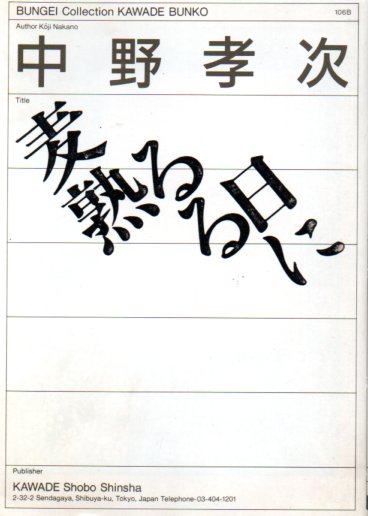 BUNGEI Collection KAWADE BUNKO 106B
Author Kōji Nakano
中野孝次
Title
麦熟るる日に
Publisher
KAWADE Shobo Shinsha
2-32-2 Sendagaya, Shibuya-ku, Tokyo, Japan Telephone-03-404-1201